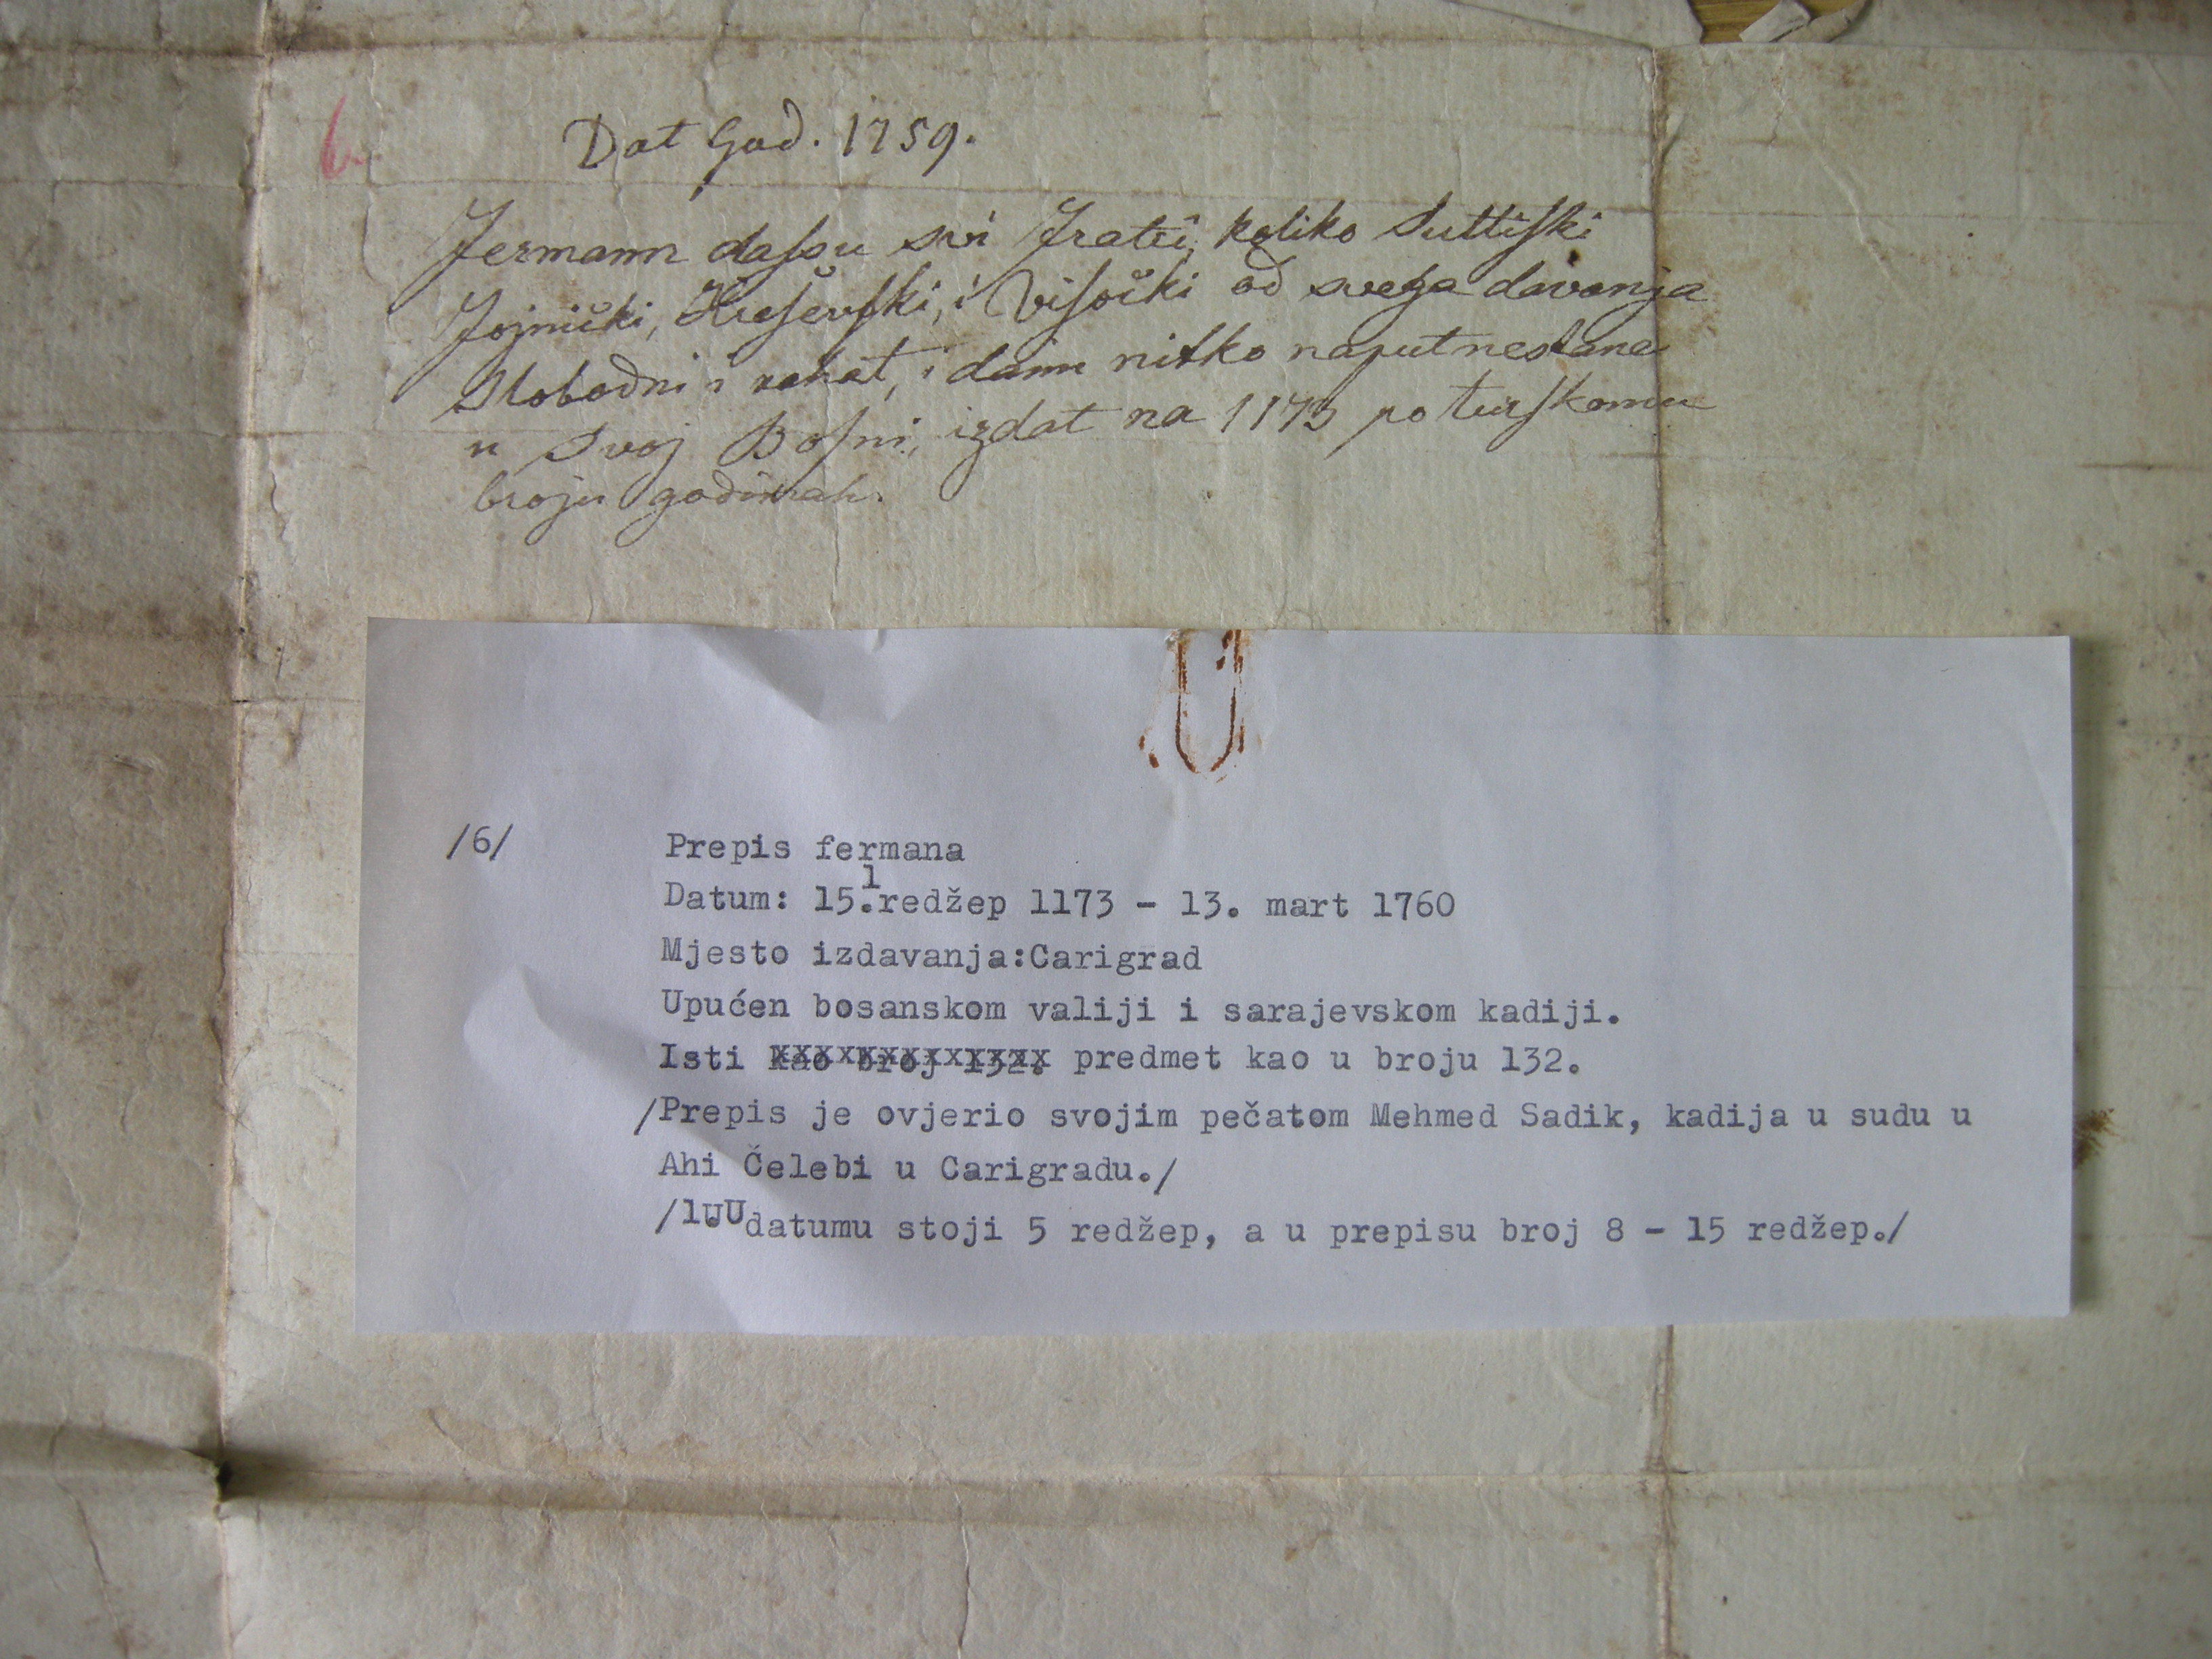 6.
Dat God. 1759.
Fermann daſsu svi Fratri, koliko Suttiſki
Fojnički, Kreſevſki, i Viſočki od svega davanja
Slobodni i rahat, i daim nitko naput nestane
u Svoj Boſni, izdat na 1173 po turſkomu
broju godinah.
/6/ Prepis fermana
Datum: 15.¹redžep 1173 - 13. mart 1760
Mjesto izdavanja:Carigrad
Upućen bosanskom valiji i sarajevskom kadiji.
Isti kao broj 132. predmet kao u broju 132.
/Prepis je ovjerio svojim pečatom Mehmed Sadik, kadija u sudu u
Ahi Čelebi u Carigradu./
/1.U datumu stoji 5 redžep, a u prepisu broj 8 - 15 redžep./